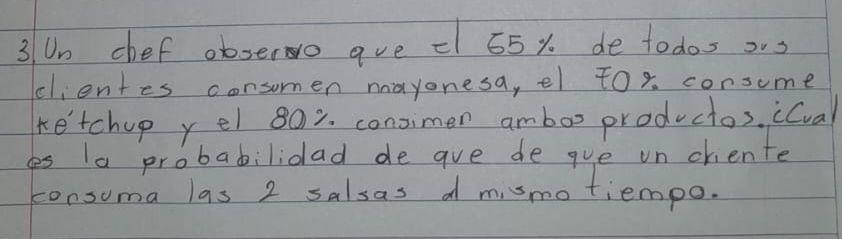 3 Un chef observo que el 65% de todos sus
clientes consumen mayonesa, el 70% consume
ketchup y el 80% consimen ambos productos. ¿Cual
es la probabilidad de que de que un cliente
consuma las 2 salsas al mismo tiempo.